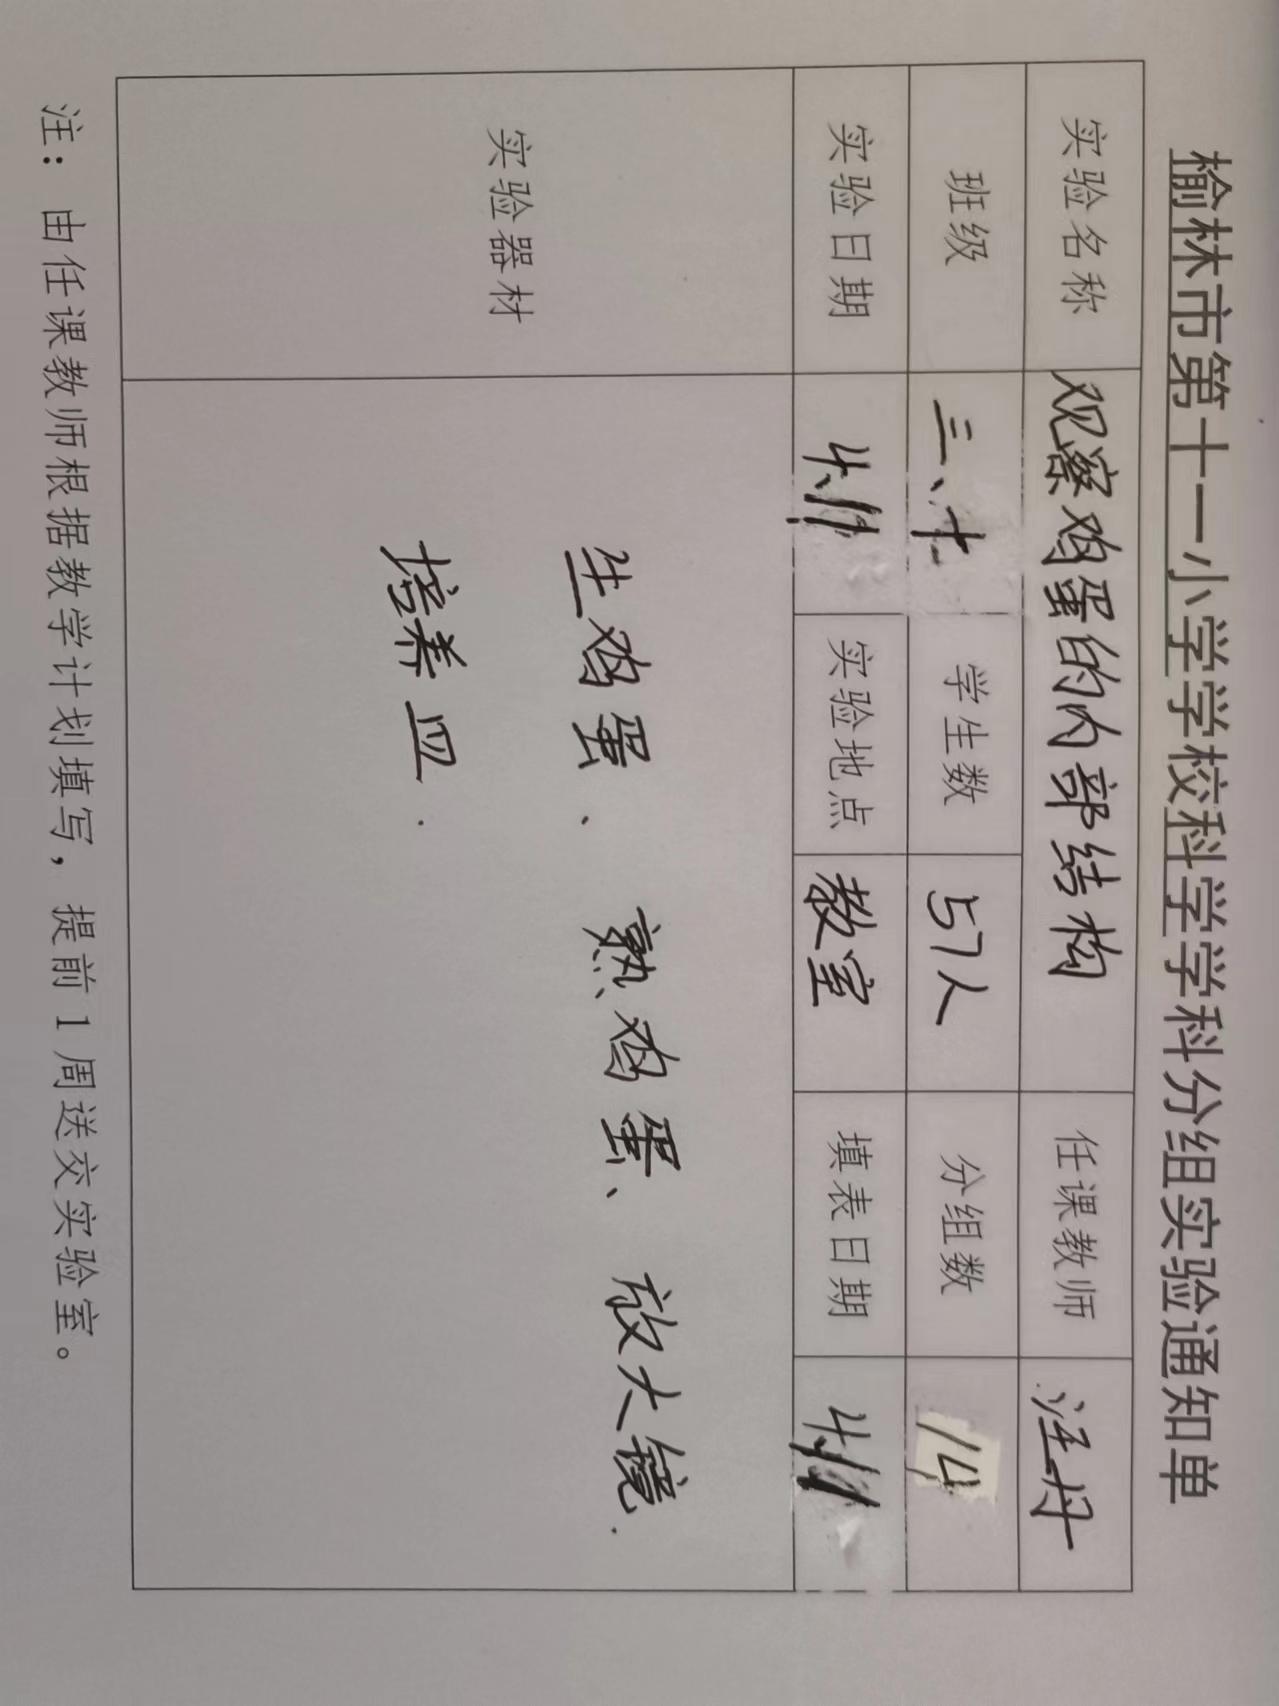 榆林市第十一小学学校科学学科分组实验通知单
实验名称 观察鸡蛋的内部结构 任课教师 汪丹
班级 三、 学生数 57人 分组数 14
实验日期 实验地点 教室 填表日期
实验器材 生鸡蛋、熟鸡蛋、放大镜.
培养皿.
注：由任课教师根据教学计划填写，提前1周送交实验室。